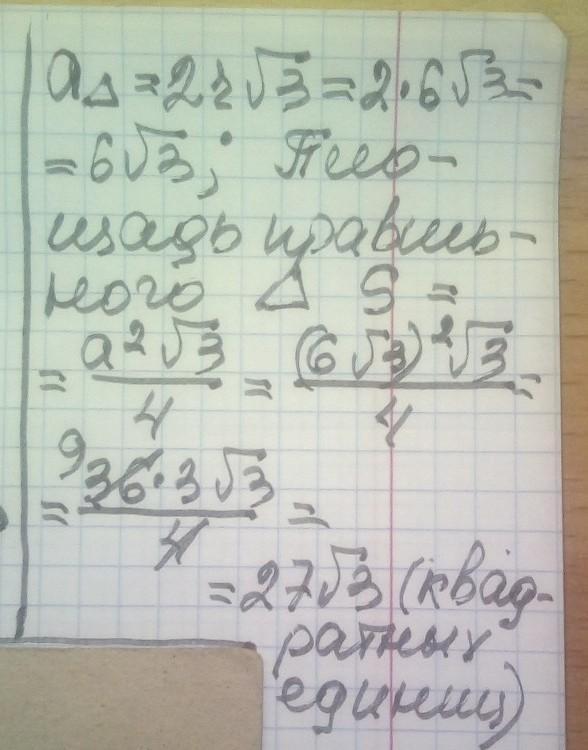 a△ = 2r√3 = 2·6√3 =
= 6√3; Пло-
щадь правиль-
ного △ S =
= a²√3/4 = (6√3)²√3/4 =
= 9 36·3√3/4 =
= 27√3 (квад-
ратных
единиц)